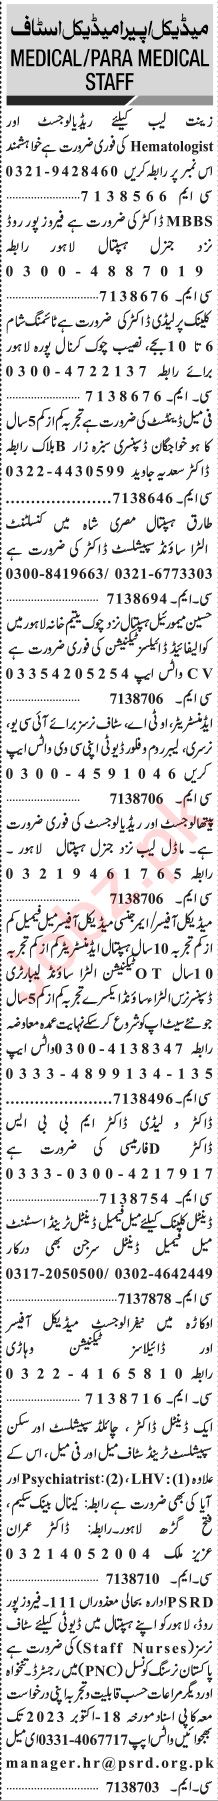 میڈیکل/پیرا میڈیکل اسٹاف
MEDICAL/PARA MEDICAL
STAFF
زینت لیب کیلئے ریڈیالوجسٹ اور
Hematologist کی فوری ضرورت ہے خواہشمند
اس نمبر پر رابطہ کریں 0321-9428460
سی ایم 7138566
MBBS ڈاکٹر کی ضرورت ہے فیروز پور روڈ
نزد جنرل ہسپتال لاہور رابطہ
0300-4887019
سی ایم۔ 7138676
کلینک پر لیڈی ڈاکٹر کی ضرورت ہے ٹائمنگ شام
6 تا 10 بجے، نصیب چوک کرنال پورہ لاہور
برائے رابطہ 0300-4722137
سی ایم۔ 7138676
فی میل ڈینٹسٹ کی ضرورت ہے تجربہ کم از کم 5 سال
کا ہو خواجگان ڈسپنسری سبزہ زار B بلاک رابطہ
ڈاکٹر سعدیہ جاوید 0322-4430599
سی۔ایم۔ 7138646
طارق ہسپتال مصری شاہ میں کنسلٹنٹ
الٹرا ساؤنڈ سپیشلسٹ ڈاکٹر کی ضرورت ہے
0300-8419663/ 0321-6773303
سی۔ایم۔ 7138694
حسین میموریل ہسپتال نزد چوک یتیم خانہ لاہور میں
کوالیفائیڈ ڈائیلسز ٹیکنیشن کی فوری ضرورت ہے
CV واٹس ایپ 03354205254
سی ایم۔ 7138706
ایڈمنسٹریٹر، او ٹی اے، سٹاف نرسز برائے آئی سی یو،
نرسری، لیبر روم و فلور ڈیوٹی اپنی سی وی واٹس ایپ
کریں 0300-4591046
سی ایم۔ 7138706
پتھالوجسٹ اور ریڈیالوجسٹ کی فوری ضرورت
ہے۔ ماڈل لیب نزد جنرل ہسپتال لاہور۔
رابطہ 03219461765
سی ایم۔ 7138706
میڈیکل آفیسر/ایمرجنسی میڈیکل آفیسر میل فیمیل کم
از کم تجربہ 10 سال ہسپتال ایڈمنسٹریٹر کم از کم تجربہ
10 سال OT ٹیکنیشن الٹرا ساؤنڈ لیبارٹری
ڈسپنسر نرس الٹراساؤنڈ ایکسرے تجربہ کم از کم 5 سال
جو نئے سیٹ اپ کو شروع کر سکے نہایت عمدہ معاوضہ
رابطہ 0300-4138347 واٹس ایپ
0333-4899134-135
سی ایم۔ 7138496
ڈاکٹر و لیڈی ڈاکٹر ایم بی بی ایس
ڈاکٹر D فارمیسی کی ضرورت ہے
0333-0300-4217917
سی ایم۔ 7138754
ڈینٹل کلینک کیلئے میل فیمیل ڈینٹل ٹرینڈ اسسٹنٹ
میل فیمیل ڈینٹل سرجن بھی درکار
0317-2050500/ 0302-4642449
سی ایم۔ 7137878
اوکاڑہ میں نیفرالوجسٹ میڈیکل آفیسر
اور ڈائیلاسز ٹیکنیشن وہاڑی
رابطہ 0322-4165810
سی۔ایم۔ 7138716
ایک ڈینٹل ڈاکٹر، چائلڈ سپیشلسٹ اور سکن
سپیشلسٹ ٹرینڈ سٹاف میل اور فی میل، اس کے
علاوہ Psychiatrist:(2)، LHV:(1) اور
آیا کی بھی ضرورت ہے رابطہ: کینال بینک سکیم،
فتح گڑھ لاہور۔رابطہ: ڈاکٹر عمران
عزیز ملک 03214052004
سی۔ایم۔ 7138710
PSRD ادارہ بحالی معذوراں 111۔فیروز پور
روڈ، لاہور کو اپنے ہسپتال میں ڈیوٹی کیلئے سٹاف
نرسز (Staff Nurses) کی ضرورت ہے
پاکستان نرسنگ کونسل (PNC) میں رجسٹرڈ۔ تنخواہ
اور دیگر مراعات حسب قابلیت و تجربہ اپنی درخواست
معہ کاپی اسناد مورخہ 18۔اکتوبر 2023 تک
بھجوائیں واٹس ایپ 0331-4067717 ای میل
manager.hr@psrd.org.pk
سی۔ایم۔ 7138703